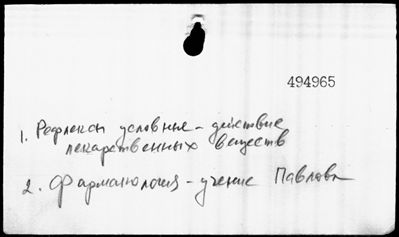 494965
1. Рефлексы условные - действие
лекарственных веществ
2. Фармакология - учение Павлова